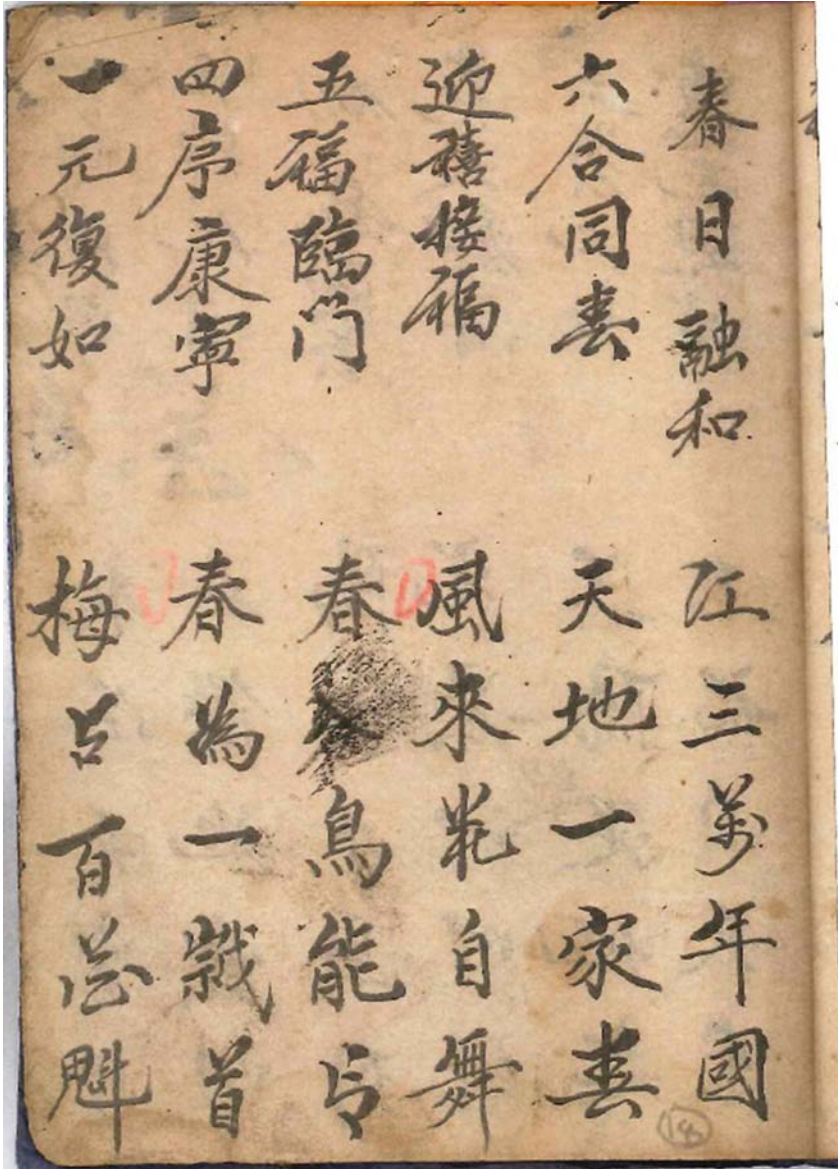 春日融和
六合同春
迎禧接福
五福臨門
四序康寧
一元復如
江三萬年國
天地一家春
風來花自舞
春鳥能言
春為一歲首
梅占百花魁
18